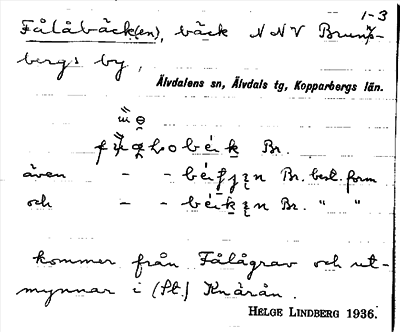 1-3
Fålåbäck(en), bäck NNV Bruns-
bergs by,
Älvdalens sn, Älvdals tg, Kopparbergs län.
Br.
även - - Br. best. form
och - - Br. " "
kommer från Fålågrav och ut-
mynnar i (St.) Knärån.
HELGE LINDBERG 1936.